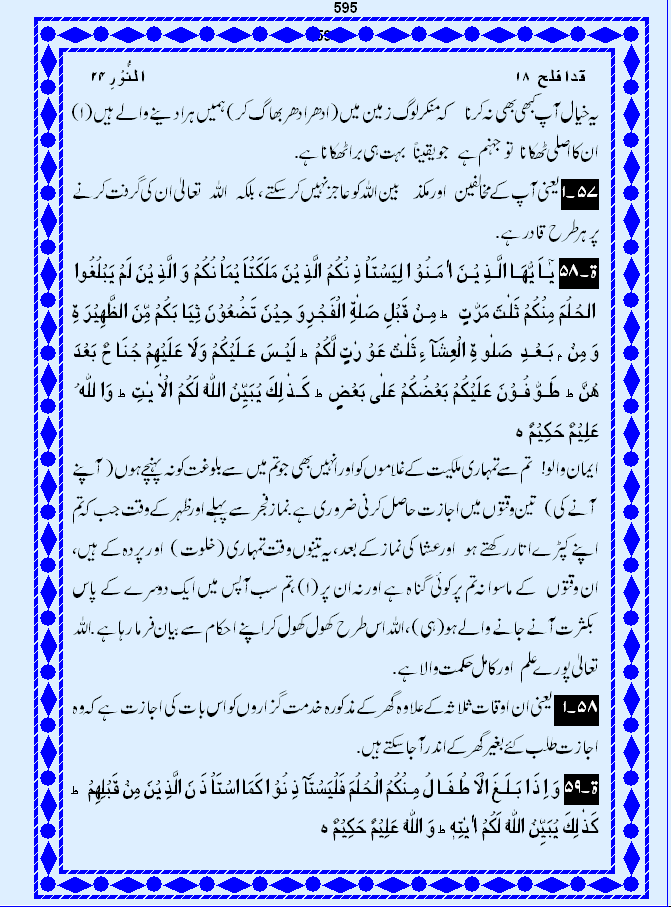 595
قد افلح ۱۸ النُّوْرِ ۲۴
یہ خیال آپ کبھی بھی نہ کرنا کہ منکر لوگ زمین میں (ادھر ادھر بھاگ کر) ہمیں ہرا دینے والے ہیں (۱)
ان کا اصلی ٹھکانا تو جہنم ہے جو یقیناً بہت ہی برا ٹھکانا ہے۔
۵۷۔۱ یعنی آپ کے مخالفین اور مکذبین اللہ کو عاجز نہیں کر سکتے، بلکہ اللہ تعالیٰ ان کی گرفت کرنے
پر ہر طرح قادر ہے۔
ۃ۔۵۸ یٰٓاَ یُّھَا الَّذِیْنَ اٰمَنُوْا لِیَسْتَاْذِنْکُمُ الَّذِیْنَ مَلَکَتْ اَیْمَا نُکُمْ وَ الَّذِیْنَ لَمْ یَبْلُغُوا
الْحُلُمَ مِنْکُمْ ثَلٰثَ مَرّٰتٍ ط مِنْ قَبْلِ صَلٰوۃِ الْفَجْرِ وَ حِیْنَ تَضَعُوْنَ ثِیَا بَکُمْ مِّنَ الظَّھِیْرَ ۃِ
وَ مِنْ ۢ بَعْدِ صَلٰو ۃِ الْعِشَآ ءِ ثَلٰثُ عَوْ رٰتٍ لَّکُمْ ط لَیْسَ عَلَیْکُمْ وَلَا عَلَیْھِمْ جُنَا حٌ بَعْدَ
ھُنَّ ط طَوّٰ فُوْنَ عَلَیْکُمْ بَعْضُکُمْ عَلٰی بَعْضٍ ط کَذٰ لِکَ یُبَیِّنُ اللّٰہُ لَکُمُ الْاٰ یٰتِ ط وَا للّٰہُ
عَلِیْمٌ حَکِیْمٌ ہ
ایمان والو! تم سے تمہاری ملکیت کے غلاموں کو اور انہیں بھی جو تم میں سے بلوغت کو نہ پہنچے ہوں (اپنے
آنے کی) تین وقتوں میں اجازت حاصل کرنی ضروری ہے۔ نماز فجر سے پہلے اور ظہر کے وقت جب کہ تم
اپنے کپڑے اتار رکھتے ہو اور عشا کی نماز کے بعد، یہ تینوں وقت تمہاری (خلوت) اور پردہ کے ہیں،
ان وقتوں کے ماسوا نہ تم پر کوئی گناہ ہے اور نہ ان پر (۱)، تم سب آپس میں ایک دوسرے کے پاس
بکثرت آنے جانے والے ہو (ہی)، اللہ اس طرح کھول کھول کر اپنے احکام سے بیان فرما رہا ہے۔ اللہ
تعالیٰ پورے علم اور کامل حکمت والا ہے۔
۵۸۔۱ یعنی ان اوقات ثلاثہ کے علاوہ گھر کے مذکورہ خدمت گزاروں کو اس بات کی اجازت ہے کہ وہ
اجازت طلب کئے بغیر گھر کے اندر آ جا سکتے ہیں۔
ۃ۔۵۹ وَ اِذَا بَلَغَ الْاَ طْفَالُ مِنْکُمُ الْحُلُمَ فَلْیَسْتَاْ ذِ نُوْ ا کَمَا اسْتَاْ ذَ نَ الَّذِیْنَ مِنْ قَبْلِھِمْ ط
کَذٰلِکَ یُبَیِّنُ اللّٰہُ لَکُمْ اٰ یٰتِہٖ ط وَ اللّٰہُ عَلِیْمٌ حَکِیْمٌ ہ